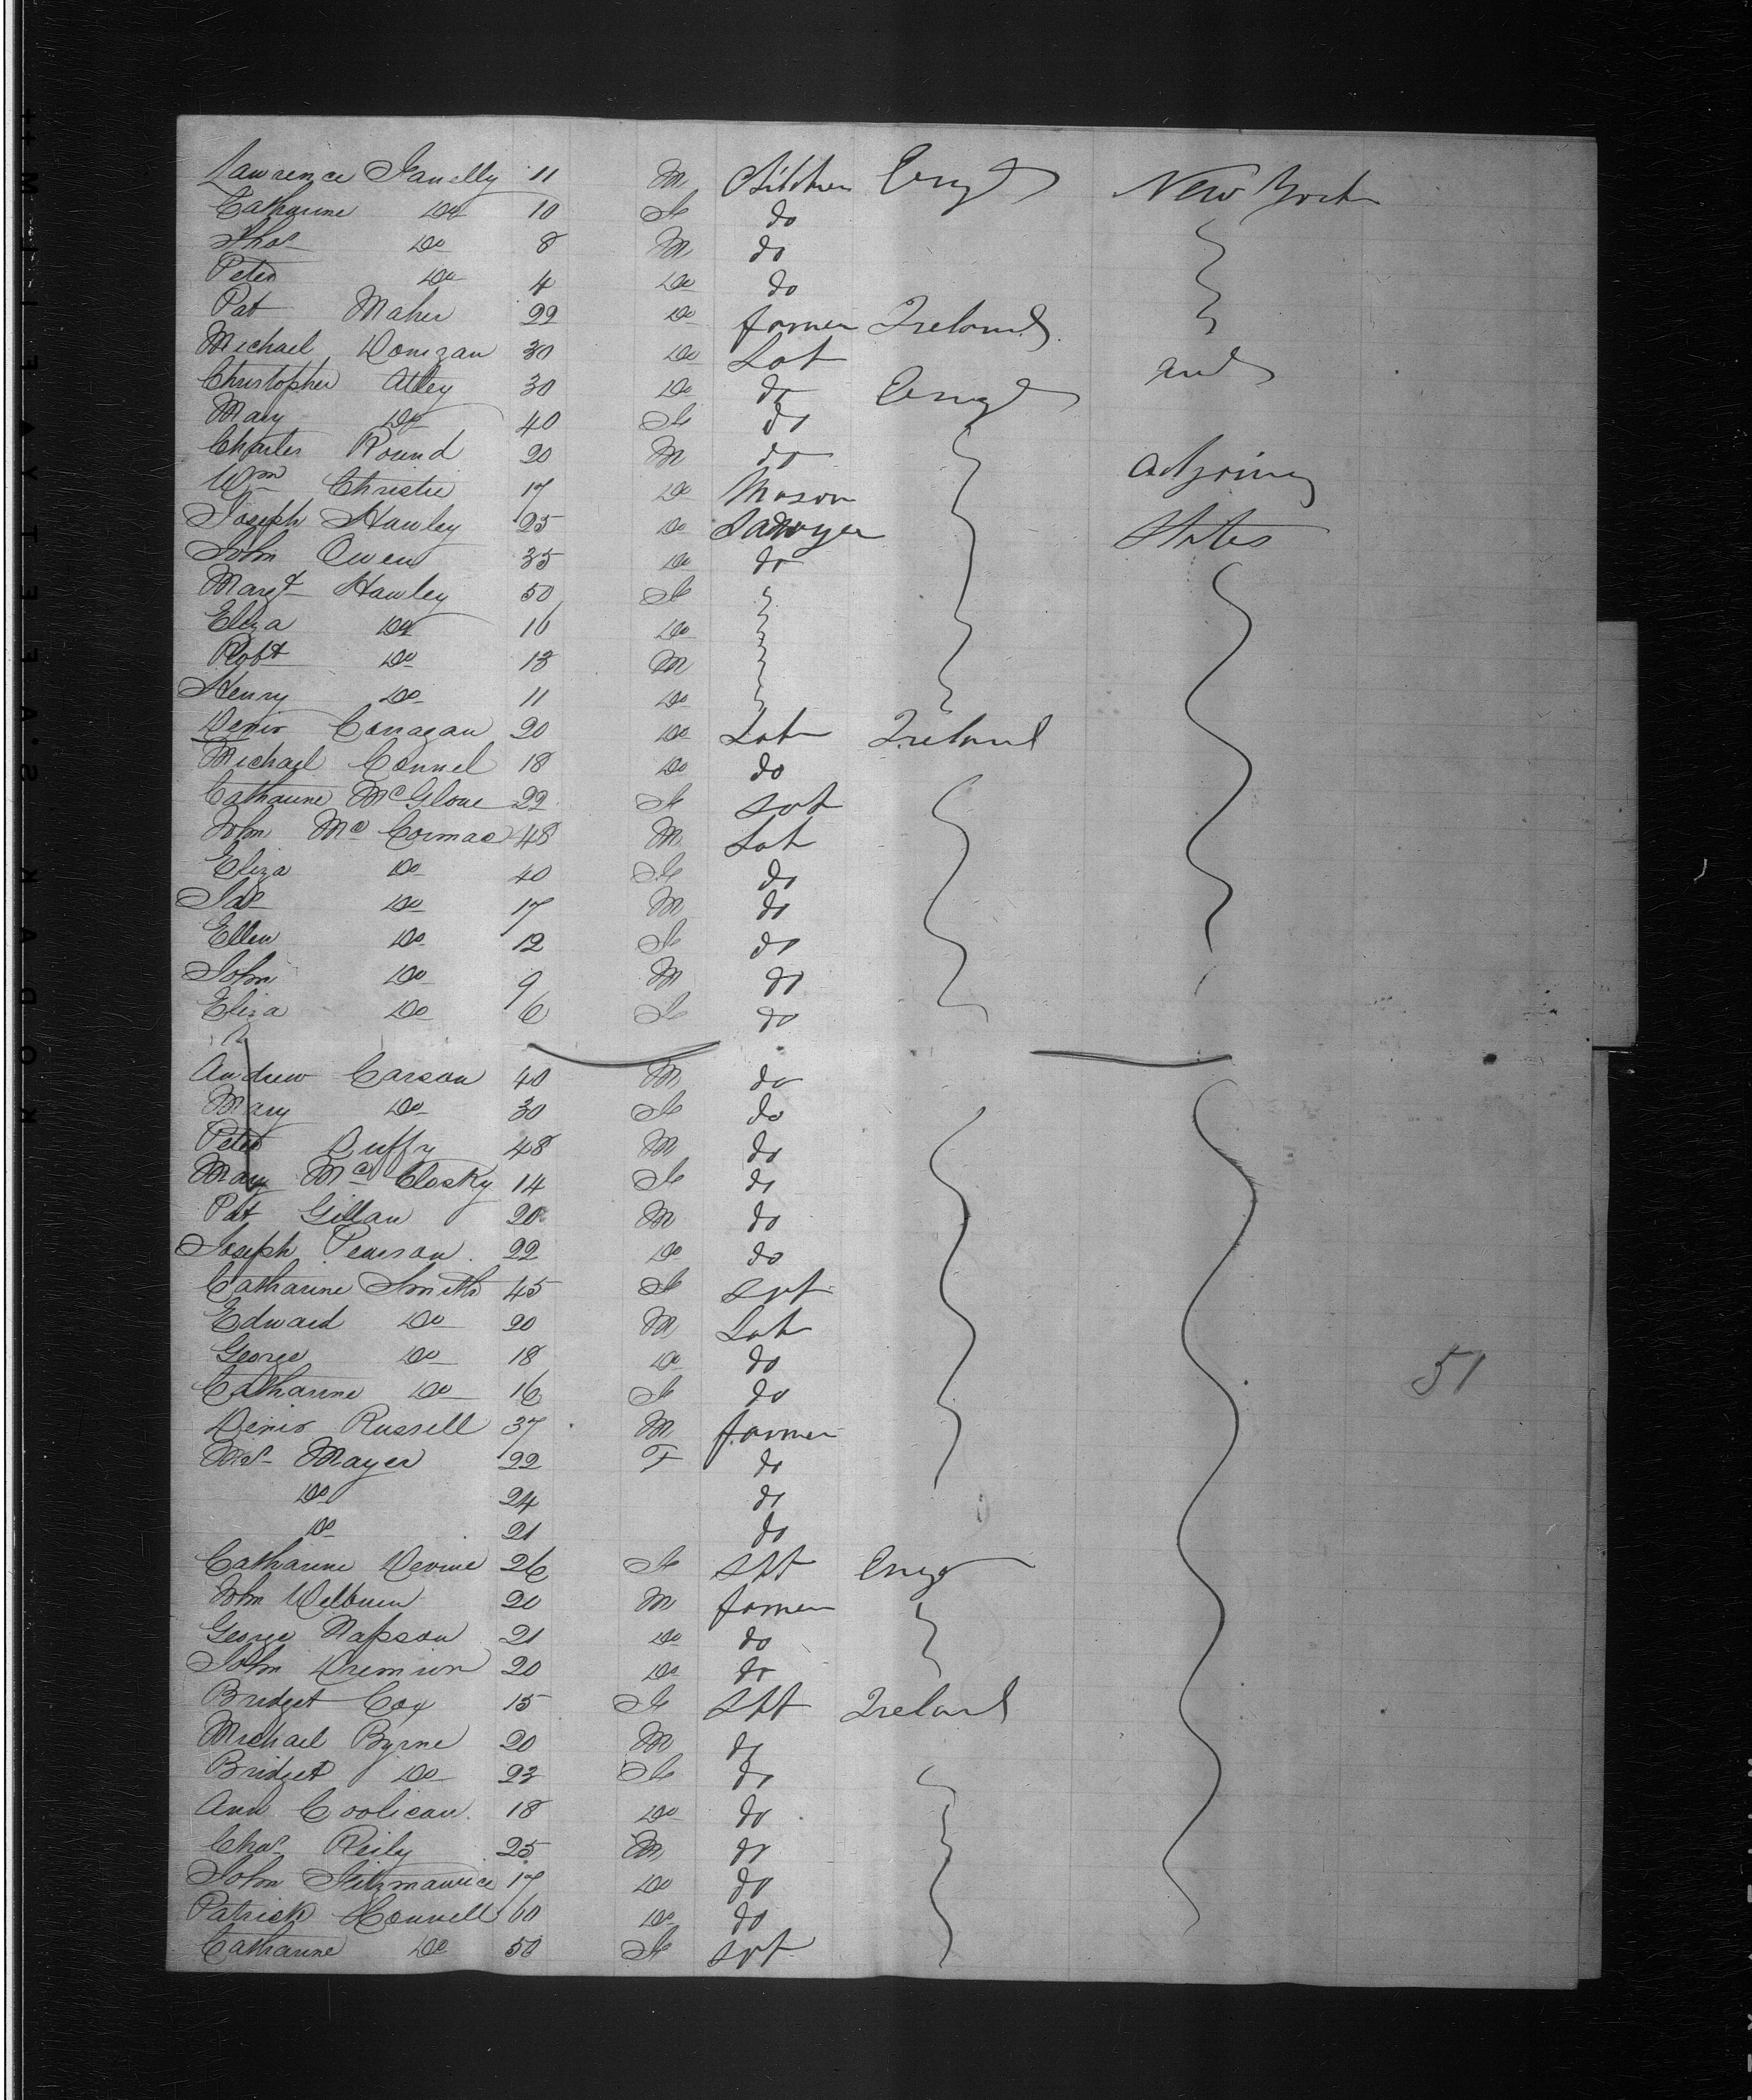 Lawrence Fanelly 11 M Children Engd New York
Catharine Do 10 Fe do
Thos Do 8 M do
Peter Do 4 Do do
Pat Maher 22 Do farmer Ireland
Michael Donigan 30 Do Lab and
Christopher Atley 30 Do do Engd
Mary Do 40 Fe do
Charles Round 20 M do adjoining
Wm Christie 17 Do Mason
Joseph Hawley 25 Do Sawyer States
John Owen 35 Do do
Margt Hawley 50 Fe
Eliza Do 16 Do
Robt Do 13 M
Henry Do 11 Do
Denis Corragan 20 Do Lab Ireland
Michael Connel 18 Do do
Catharine McGlone 22 Fe spt
John McCormac 48 M Lab
Eliza Do 40 Fe do
Jas Do 17 M do
Ellen Do 12 Fe do
John Do 9 M do
Eliza Do 6 Fe do
Andrew Carson 40 M do
Mary Do 30 Fe do
Peter Duffy 48 M do
Mary McClosky 14 Fe do
Pat Gillan 20 M do
Joseph Pearson 22 Do do
Catharine Smith 45 Fe spt
Edward Do 20 M Lab
George Do 18 Do do 51
Catharine Do 16 Fe do
Denis Russell 37 M farmer
Mrs Mayer 22 F do
Do 24 do
Do 21 do
Catharine Devine 26 Fe spt Engd
John Welburn 20 M farmer
George Napson 21 Do do
John 20 Do do
Bridget Coy 15 Fe spt Ireland
Michael Byrne 20 M do
Bridget Do 23 Fe do
Ann Coolican 18 Do do
Chas Reily 25 M do
John Fitzmaurice 17 Do do
Patrick Connell 60 Do do
Catharine Do 50 Fe spt